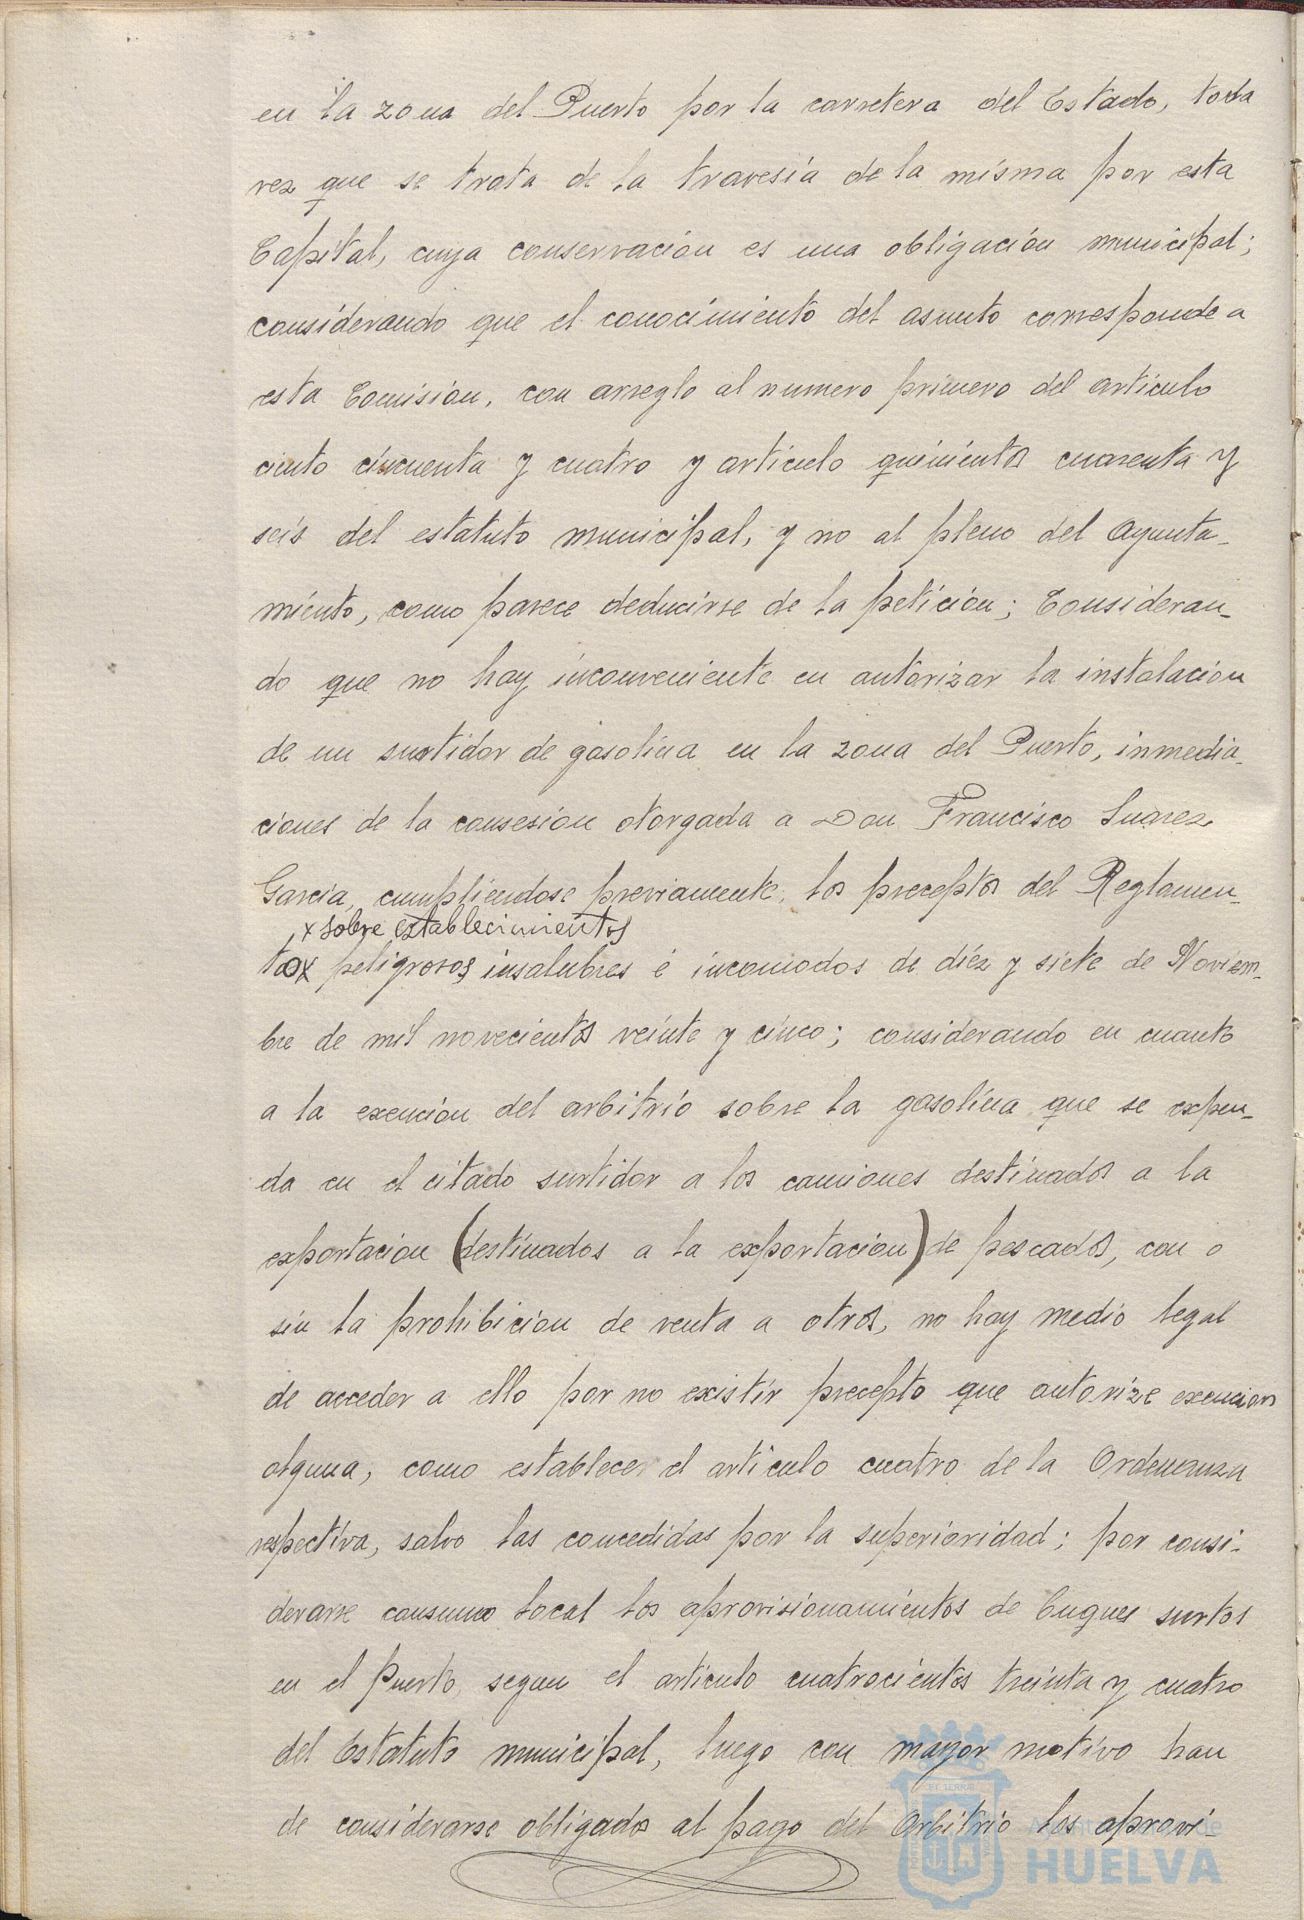 en la zona del Puerto por la carretera del Estado, toda
vez que se trata de la travesía de la misma por esta
Capital, cuya conservación es una obligación municipal;
considerando que el conocimiento del asunto corresponde a
esta Comisión, con arreglo al numero primero del articulo
ciento cincuenta y cuatro y articulo quinientos cuarenta y
seis del estatuto municipal, y no al pleno del Ayunta-
miento, como parece deducirse de la petición; Consideran-
do que no hay inconveniente en autorizar la instalación
de un surtidor de gasolina en la zona del Puerto, inmedia-
ciones de la consesión otorgada a Don Francisco Suarez
Garcia, cumpliendose previamente, los preceptos del Reglamen-
x sobre establecimientos
tox peligrosos insalubres é incomodos de diéz y siete de Noviem-
bre de mil novecientos veinte y cinco; considerando en cuanto
a la exención del arbitrio sobre la gasolina que se expen-
da en el citado surtidor a los camiones destinados a la
exportación (destinados a la exportación) de pescados, con o
sin la prohibición de venta a otros, no hay medio legal
de acceder a ello por no existir precepto que autorize exencion
alguna, como establece el articulo cuatro de la Ordenanza
respectiva, salvo las concedidas por la superioridad; por consi-
derarse consumo local los aprovisionamientos de buques surtos
en el Puerto, segun el articulo cuatrocientos treinta y cuatro
del Estatuto municipal, luego con mayor motivo han
de considerarse obligados al pago del Arbitrio los aprovi-
HUELVA